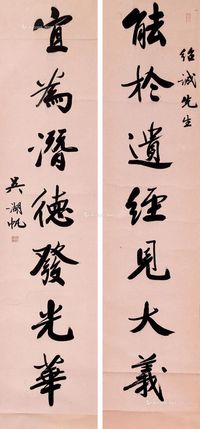 紹誠先生
能於遺經見大義
宜為潛德發光華
吳湖帆